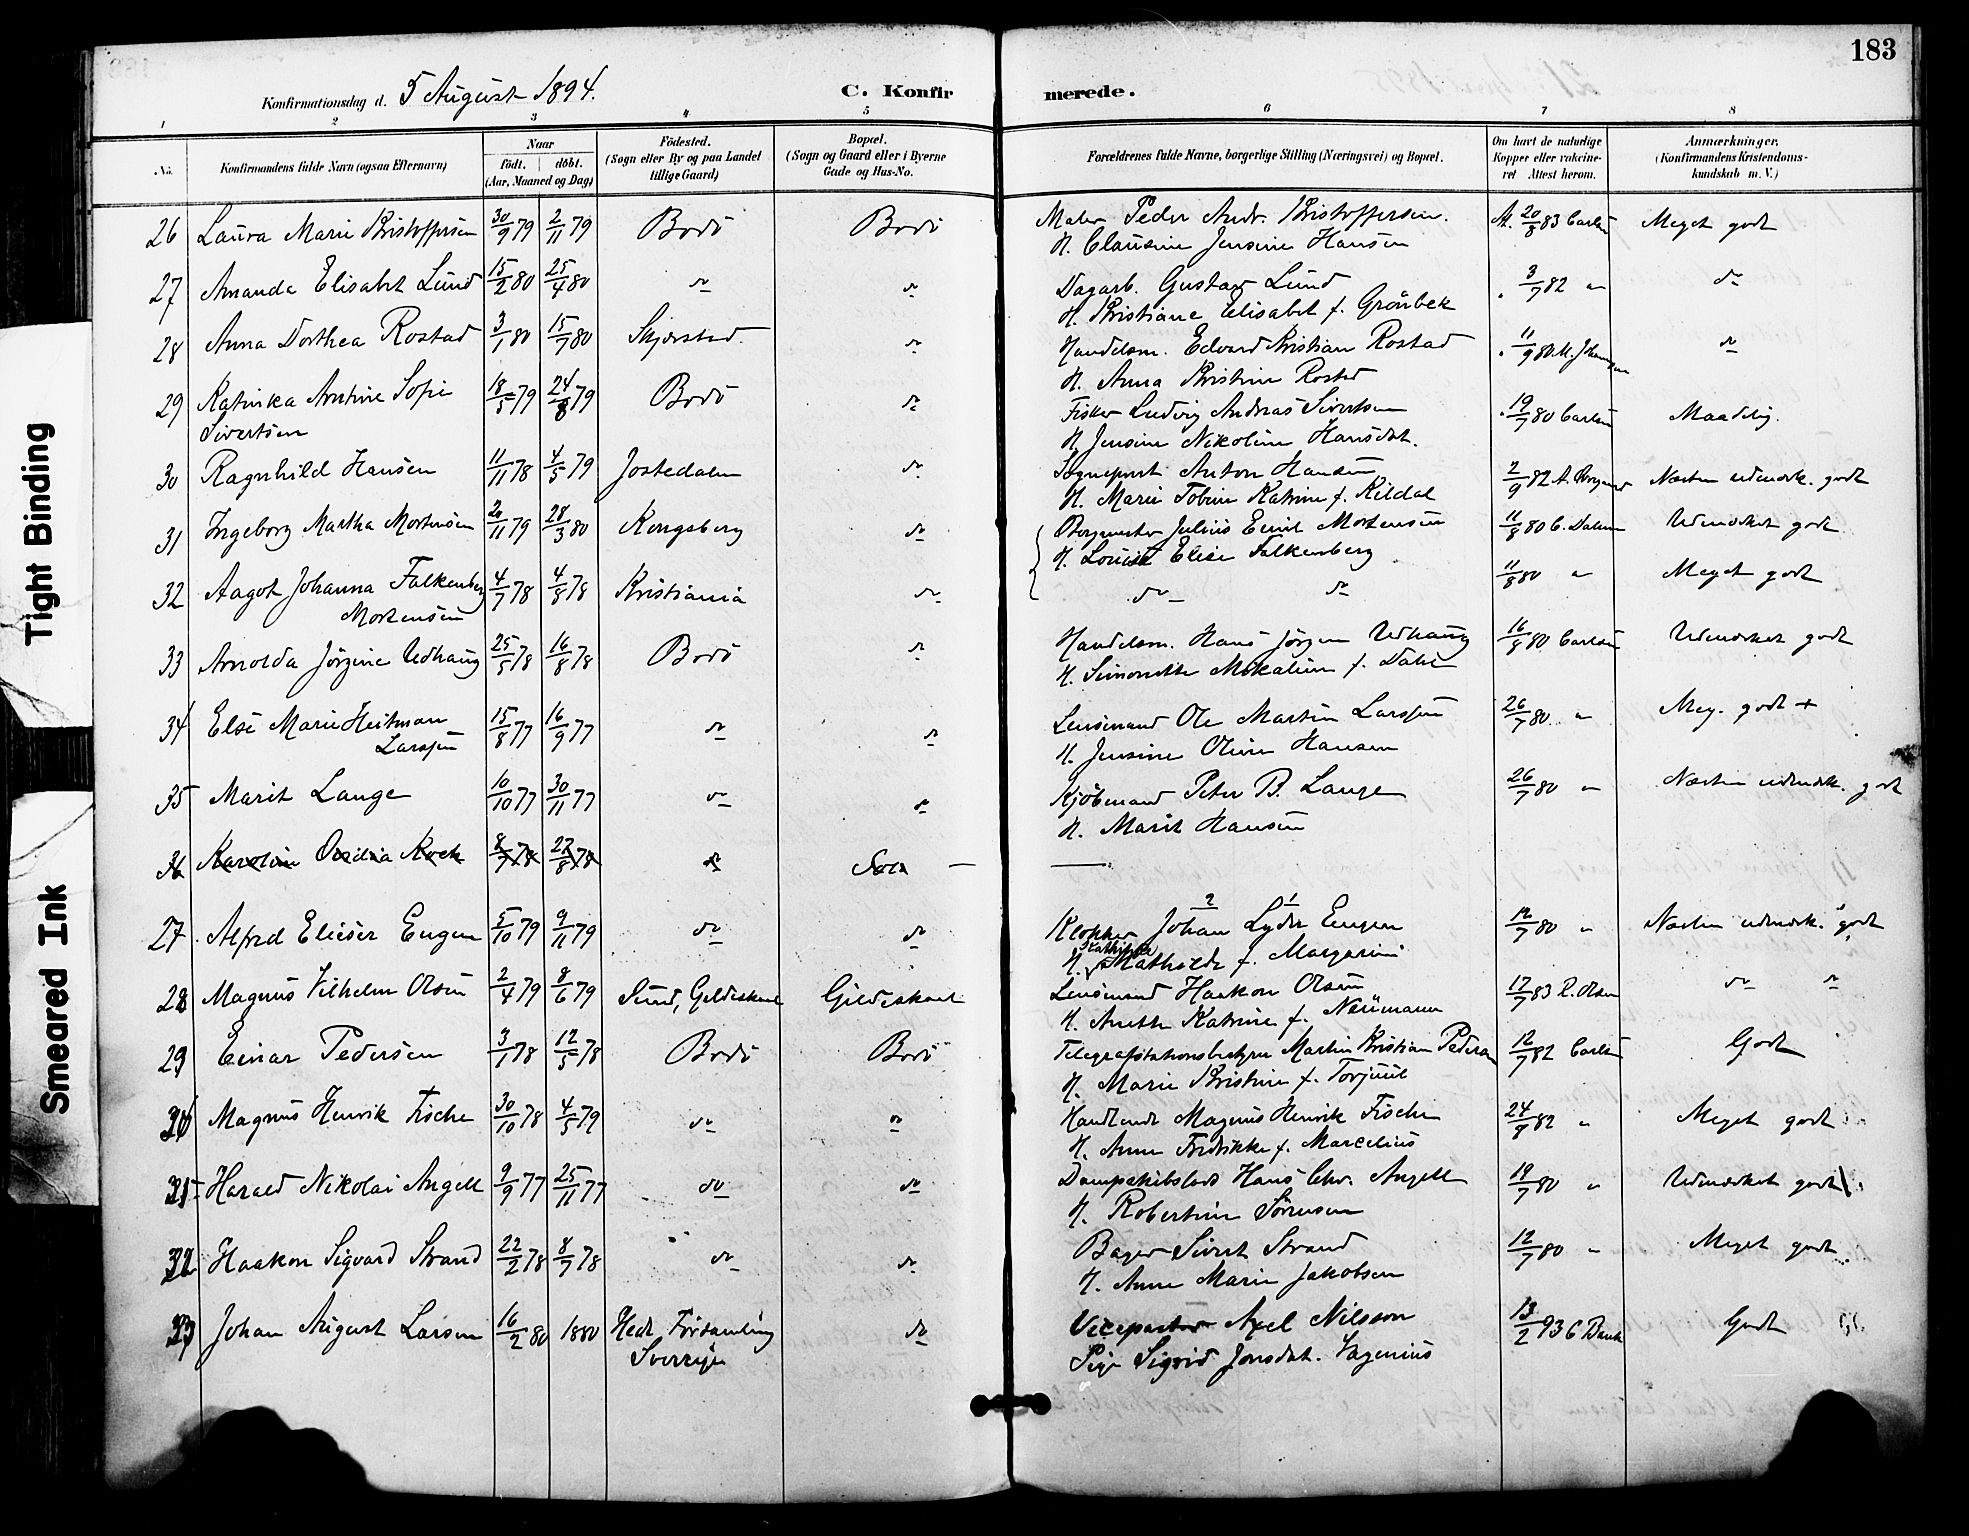 183
Konfirmationsdag d. 5 August 1894.
C. Konfirmerede.
1 2 3 4 5 6 7 8
No.
Konfirmandens fulde Navn (ogsaa Efternavn)
Naar
födt. döbt.
(Aar, Maaned og Dag)
Födested.
(Sogn eller By og paa Landet
tillige Gaard)
Bopæl.
(Sogn og Gaard eller i Byerne
Gade og Hus-No.
Forældrenes fulde Navne, borgerlige Stilling (Næringsvei) og Bopæl.
Om havt de naturlige
Kopper eller vakcine-
ret Attest herom.
Anmærkninger.
(Konfirmandens Kristendoms-
kundskab m. V.)
26 Laura Marie Kristoffersen 30/9 79 2/11 79 Bodö Bodö Maler Peder Andr. Kristoffersen. At. 20/8 83 Carlsen Meget godt
H. Clausine Jensine Hansen
27 Amanda Elisabet Lund 15/2 80 25/4 80 do do Dagarb. Gustav Lund 3/7 82 " do
H. Kristiane Elisabet f. Grönbek
28 Anna Dorthea Rostad 3/1 80 15/7 80 Skjerstad do Handelsm. Edvard Kristian Rostad 11/9 80 do
H. Anna Kristine Rostad
29 Katinka Antine Sofie 18/5 79 24/8 79 Bodö do Fisker Ludvig Andreas Sivertsen 19/7 80 Carlsen Maadelig.
Sivertsen H. Jensine Nikoline Hansdat.
30 Ragnhild Hansen 11/11 78 4/5 79 Jostedalen do Sogneprest Anton Hansen 2/9 82 Næsten udmærk. godt
H. Marie Tobine Katrine f. Kildal
31 Ingeborg Martha Mortensen 20/11 79 28/3 80 Kongsberg do Borgmester Julius Emil Mortensen 11/8 80 C. Dalum Udmærket godt
H. Louise Elise Falkenberg
32 Aagot Johanna Falkenberg 4/7 78 4/8 78 Kristiania do do do 11/8 80 " Meget godt
Mortensen
33 Arnolda Jörgine Udhaug 25/5 78 16/8 78 Bodö do Handelsm. Hans Jörgen Udhaug 16/8 80 Carlsen Udmærket godt
H. Simonette Mikaline f. Dahl
34 Else Marie Heitman 15/8 77 16/9 77 do do Lensmand Ole Martin Larssen 26/7 80 " Meg. godt +
Larssen H. Jensine Oline Hansen
35 Marit Lange 10/10 77 30/11 77 do do Kjöbmand Peter B. Lange 26/7 80 " Næsten udmærk. godt
H. Marit Hansen
36 Karoline Ovidia Koch 8/7 78 27/8 78 do —
27 Alfred Elieser Eugen 5/10 79 9/11 79 do do Klokker Johan Lyder Eugen 12/7 80 " Næsten udmærk. godt
H. Kathinka Mathilde f. Margarini
28 Magnus Vilhelm Olsen 2/4 79 8/6 79 Sund, Gildeskaal Gildeskaal Lensmand Haakon Olsen 17/7 83 R. Olsen do do
H. Anette Katrine f. Neumann
29 Einar Pedersen 3/1 78 12/5 78 Bodö Bodö Telegrafstationsbestyrer Martin Kristian Pedersen 12/7 82 Carlsen Godt
H. Marie Kristine f. Torjuul
30 Magnus Henrik Fische 30/10 78 4/5 79 do do Handlende Magnus Henrik Fische 24/9 82 " Meget godt
H. Anne Fredrikke f. Marcelius
31 Harald Nikolai Angell 9/9 77 25/11 77 do do Dampskibslods Hans Chr. Angell 19/7 80 " Udmærket godt
H. Robertine Sörensen
32 Haakon Sigvard Strand 22/2 78 8/7 78 do do Bager Sivert Strand 12/7 80 " Meget godt
H. Anne Marie Jakobsen
33 Johan August Larsen 16/2 80 1880 Hedv. Församling do Vicepastor Axel Nilsson 13/2 93 Godt
Sverrige Pige Sigrid Jonsdat. Vagenius
Tight Binding
Smeared Ink